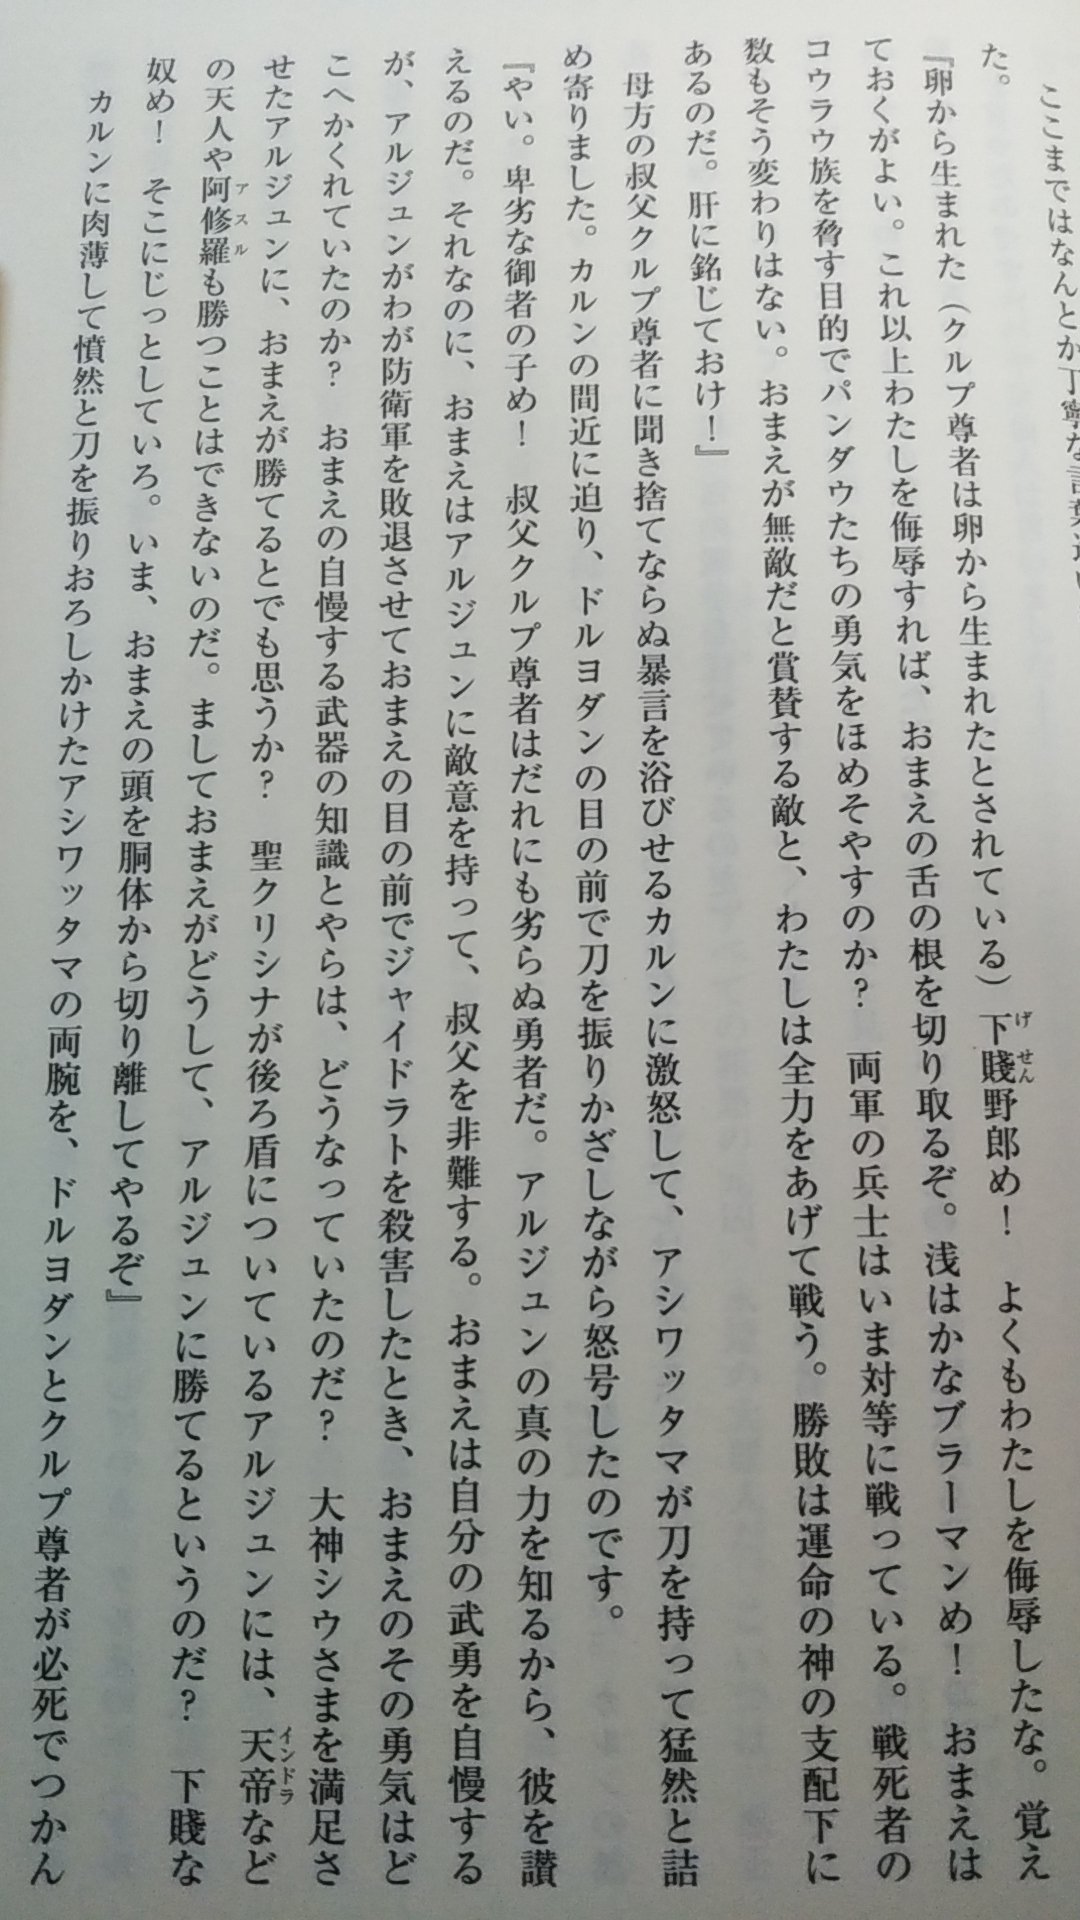 ここまではなんとか丁寧な言葉遣い
た。
『卵から生まれた（クルプ尊者は卵から生まれたとされている）下賤野郎め！　よくもわたしを侮辱したな。覚え
ておくがよい。これ以上わたしを侮辱すれば、おまえの舌の根を切り取るぞ。浅はかなブラーマンめ！　おまえは
コウラウ族を脅す目的でパンダウたちの勇気をほめそやすのか？　両軍の兵士はいま対等に戦っている。戦死者の
数もそう変わりはない。おまえが無敵だと賞賛する敵と、わたしは全力をあげて戦う。勝敗は運命の神の支配下に
あるのだ。肝に銘じておけ！』
母方の叔父クルプ尊者に聞き捨てならぬ暴言を浴びせるカルンに激怒して、アシワッタマが刀を持って猛然と詰
め寄りました。カルンの間近に迫り、ドルヨダンの目の前で刀を振りかざしながら怒号したのです。
『やい。卑劣な御者の子め！　叔父クルプ尊者はだれにも劣らぬ勇者だ。アルジュンの真の力を知るから、彼を讃
えるのだ。それなのに、おまえはアルジュンに敵意を持って、叔父を非難する。おまえは自分の武勇を自慢する
が、アルジュンがわが防衛軍を敗退させておまえの目の前でジャイドラトを殺害したとき、おまえのその勇気はど
こへかくれていたのか？　おまえの自慢する武器の知識とやらは、どうなっていたのだ？　大神シウさまを満足さ
せたアルジュンに、おまえが勝てるとでも思うか？　聖クリシナが後ろ盾についているアルジュンには、天帝など
の天人や阿修羅も勝つことはできないのだ。ましておまえがどうして、アルジュンに勝てるというのだ？　下賤な
奴め！　そこにじっとしていろ。いま、おまえの頭を胴体から切り離してやるぞ』
カルンに肉薄して憤然と刀を振りおろしかけたアシワッタマの両腕を、ドルヨダンとクルプ尊者が必死でつかん